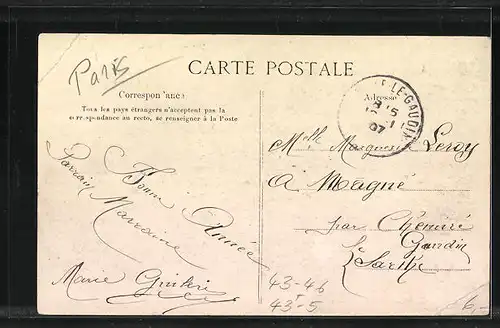 Paris
CARTE POSTALE
Correspondance
Adresse
Tous les pays étrangers n'acceptent pas la
correspondance au recto, se renseigner à la Poste
LE-GAUDIN
15
07
Mlle Marguerite Leroy
à Magné
par Chemiré
Gaudin
Sarthe
Bonne Année
Parrain
Marraine
Marie
43-46
43-5
6,-